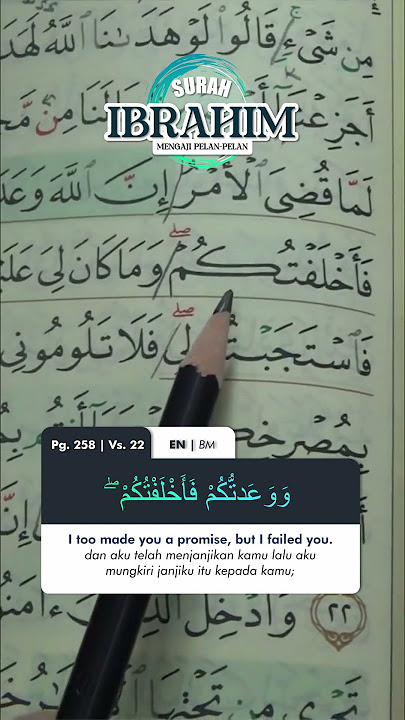 مِن شَىْءٍ ۚ قَالُوا۟ لَوْ هَدَىٰنَا ٱللَّهُ لَهَدَ
SURAH
IBRAHIM
MENGAJI PELAN-PELAN
أَجَزِعْنَآ أَ لَنَا مِن مَّح
لَمَّا قُضِىَ ٱلْأَمْرُ إِنَّ ٱللَّهَ وَعَدَ
فَأَخْلَفْتُكُمْ ۖ وَمَا كَانَ لِىَ عَلَيْ
فَٱسْتَجَبْتُمْ لِى ۖ فَلَا تَلُومُونِى
بِمُصْرِخِ
Pg. 258 | Vs. 22
EN | BM
وَوَعَدتُّكُمْ فَأَخْلَفْتُكُمْ ۖ
I too made you a promise, but I failed you.
dan aku telah menjanjikan kamu lalu aku
mungkiri janjiku itu kepada kamu;
وَأُدْخِلَ ٱلَّذِينَ ءَامَنُ ٢٢
تَجْرِى مِن تَحْتِهَا